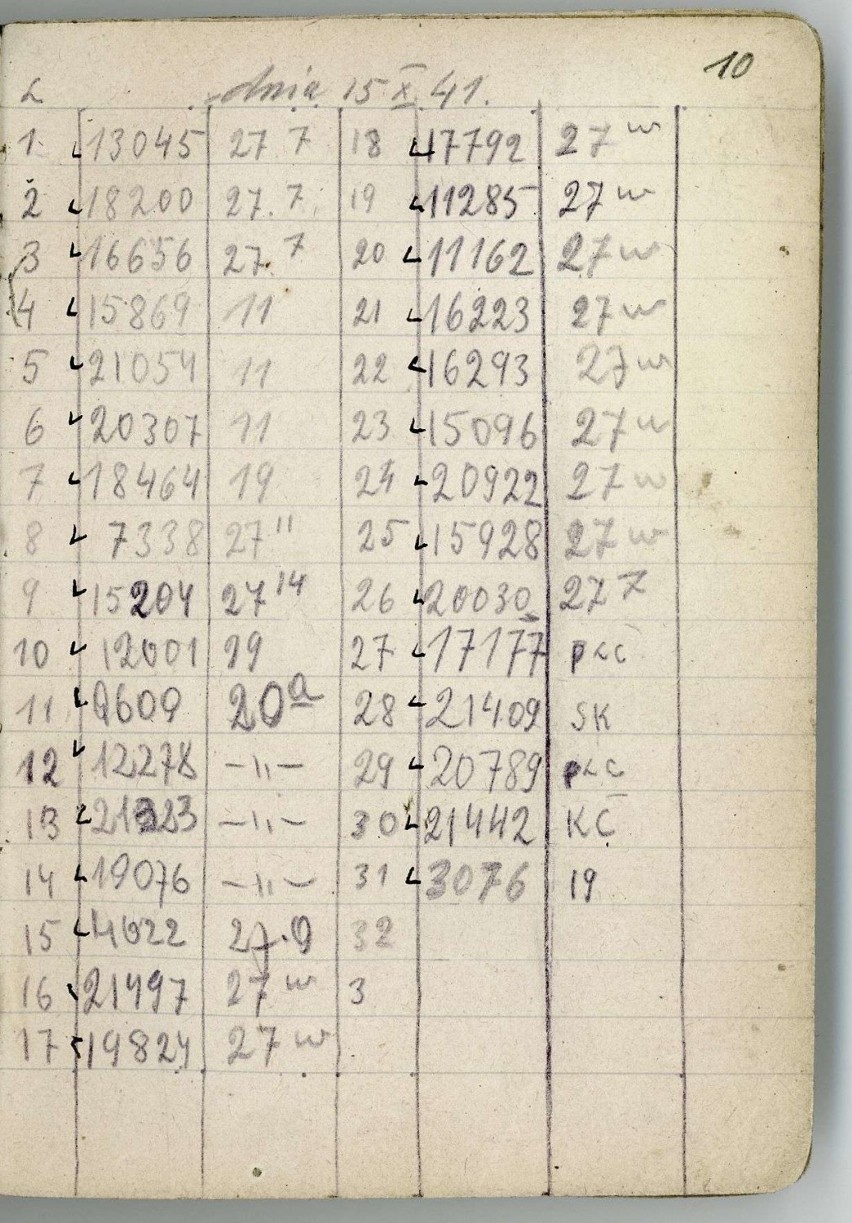 10
L dnia 15 X 41.
1 13045 27 7 18 17792 27 w
2 18200 27.7 19 11285 27 w
3 16656 27.7 20 11162 27 w
4 15869 11 21 16223 27 w
5 21054 11 22 16293 27 w
6 20307 11 23 15096 27 w
7 18464 19 24 20922 27 w
8 7338 27 11 25 15928 27 w
9 15204 27 14 26 20030 27 7
10 12001 19 27 17177
11 9609 20a 28 21409 SK
12 12278 -〃- 29 20789
13 21323 -〃- 30 21442 KČ
14 19076 -〃- 31 3076 19
15 4622 27.9 32
16 21497 27 w 3
17 19824 27 w